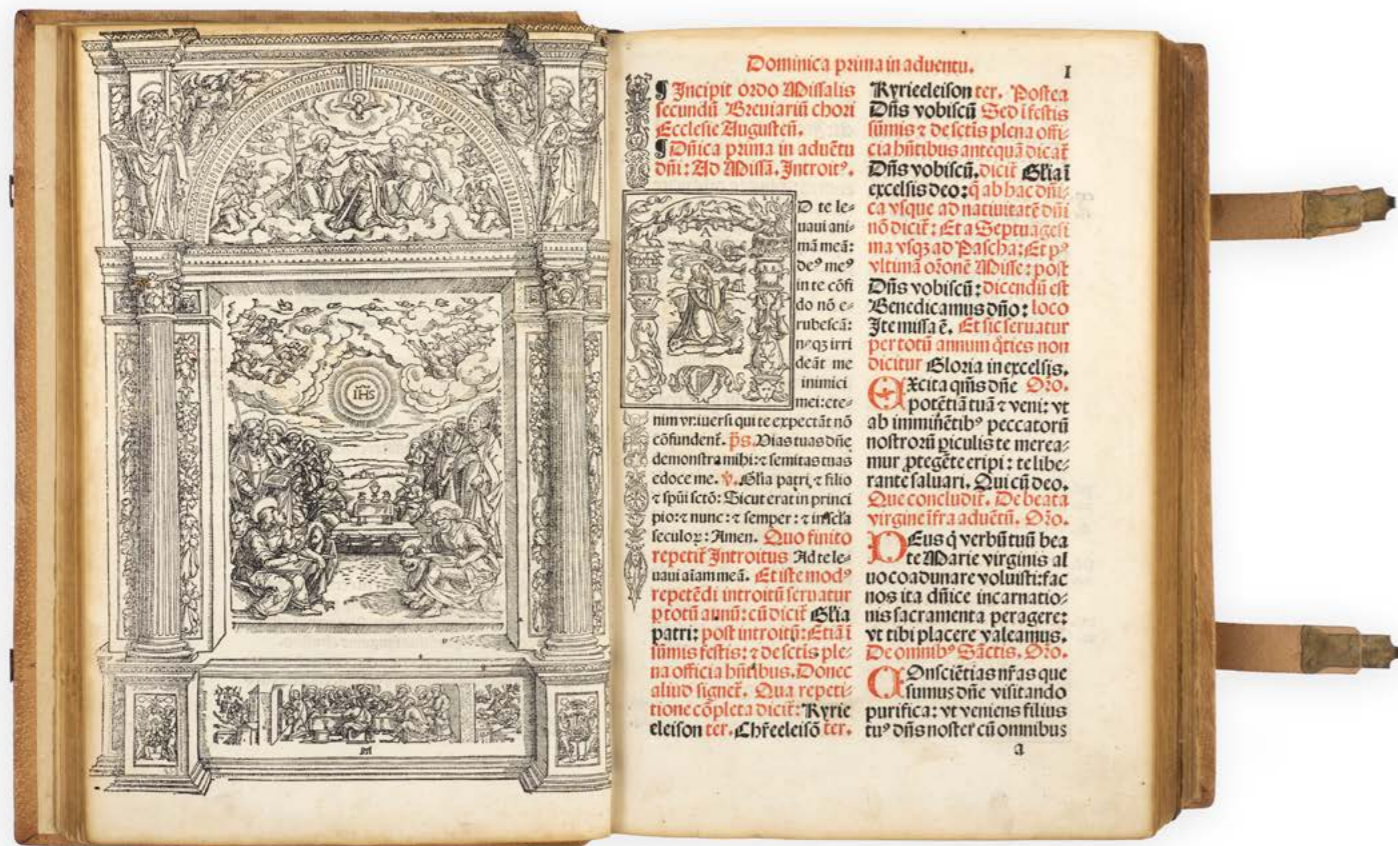 IHS
Dominica prima in aduentu.
I
¶ Incipit ordo Missalis
secundū Breuiariū chori
Ecclesie Augusteñ.
¶ Dñica prima in aduētu
dñi: Ad Missā. Introit⁹.
A
D te le-
uaui ani-
mā meā:
de⁹ me⁹
in te cōfi
do nō e-
rubescā:
neqꝫ irri
deāt me
inimici
mei: ete-
nim vniuersi qui te expectāt nō
cōfundent᷑. p̄s. Vias tuas dñe
demonstra mihi: ⁊ semitas tuas
edoce me. v̄. Glīa patri, ⁊ filio
⁊ spūi sctō: Sicut erat in princi
pio: ⁊ nunc: ⁊ semper: ⁊ in scl̄a
seculoꝝ: Amen. Quo finito
repetit᷑ Introitus Ad te le-
uaui aīam meā. Et iste mod⁹
repetēdi introitū seruatur
ꝑ totū annū: cū dicit᷑ Glīa
patri: post introitū: Etiā ī
sūmis festis: ⁊ de sctis ple-
na officia hñtibus. Donec
aliud signet᷑. Qua repeti-
tione cōpleta dicit᷑: Kyrie
eleison ter. Chr̄eeleisō ter.
Kyrieeleison ter. Postea
Dñs vobiscū Sed ī festis
sūmis ⁊ de sctis plena offi-
cia hñtibus antequā dicat᷑
Dñs vobiscū. dicit᷑ Glīa ī
excelsis deo: q̄ ab hac dñi-
ca vsque ad natiuitatē dñi
nō dicit᷑: Et a Septuagesi
ma vsqꝫ ad Pascha: Et p⁹
vltimā oꝛonē Misse: post
Dñs vobiscū: dicendū est
Benedicamus dño: loco
Ite missa ē. Et sic seruatur
per totū annum q̄ties non
dicitur Gloria in excelsis.
EXcita q̄ms dñe Oꝛo.
potētiā tuā ⁊ veni: vt
ab imminētib⁹ peccatorū
nostrorū ꝑiculis te merea-
mur ꝓtegēte eripi: te libe-
rante saluari. Qui cū deo.
Que concludit᷑. De beata
virgine īfra aduētū. Oꝛo.
DEus q̄ verbū tuū bea
te Marie virginis al
uo coadunare voluisti: fac
nos ita dñice incarnatio-
nis sacramenta peragere:
vt tibi placere valeamus.
De omnib⁹ Sāctis. Oꝛo.
COnsciētias nr̄as que
sumus dñe visitando
purifica: vt veniens filius
tu⁹ dñs noster cū omnibus
a